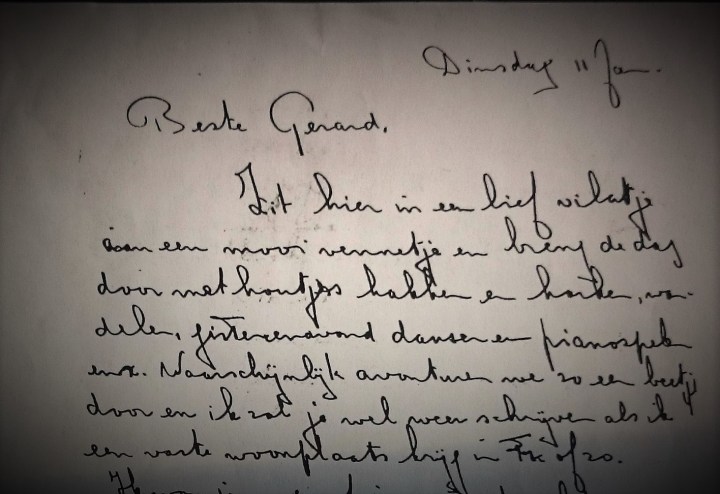 Dinsdag 11 Jan.
Beste Gerard,
Zit hier in een lief vilatje
aan een mooi vennetje en breng de dag
door met houtjes hakken en harken, wan-
delen, gisterenavond dansen en pianospelen
enz. Waarschijnlijk avonturen we zo een beetje
door en ik zal je wel weer schrijven als ik
een vaste woonplaats krijg in Fr. of zo.